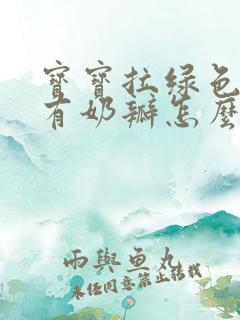 寶寶拉绿色
有奶瓣怎麽
雨與鱼丸
未经同意禁止转载